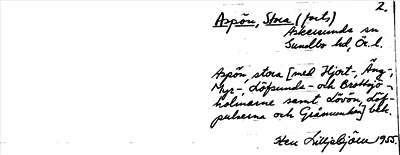 2.
Aspön, Stora (forts)
Askersunds sn
Sundbo hd, Ör. l.
Aspön, stora [med Hjort-, Äng-,
Myr-, Löfsunds- och Brottsjö-
holmarne samt Lövön, Löf-
pulserna och Gråmunken] beb.
Sten Liljebjörn 1955.